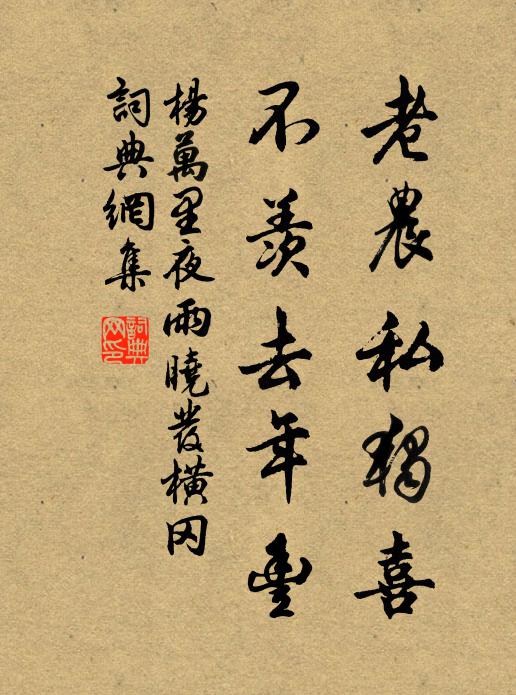 老農私獨喜
不羨去年豐
楊萬里夜雨曉發橫冈
詞典網集
詞典网印